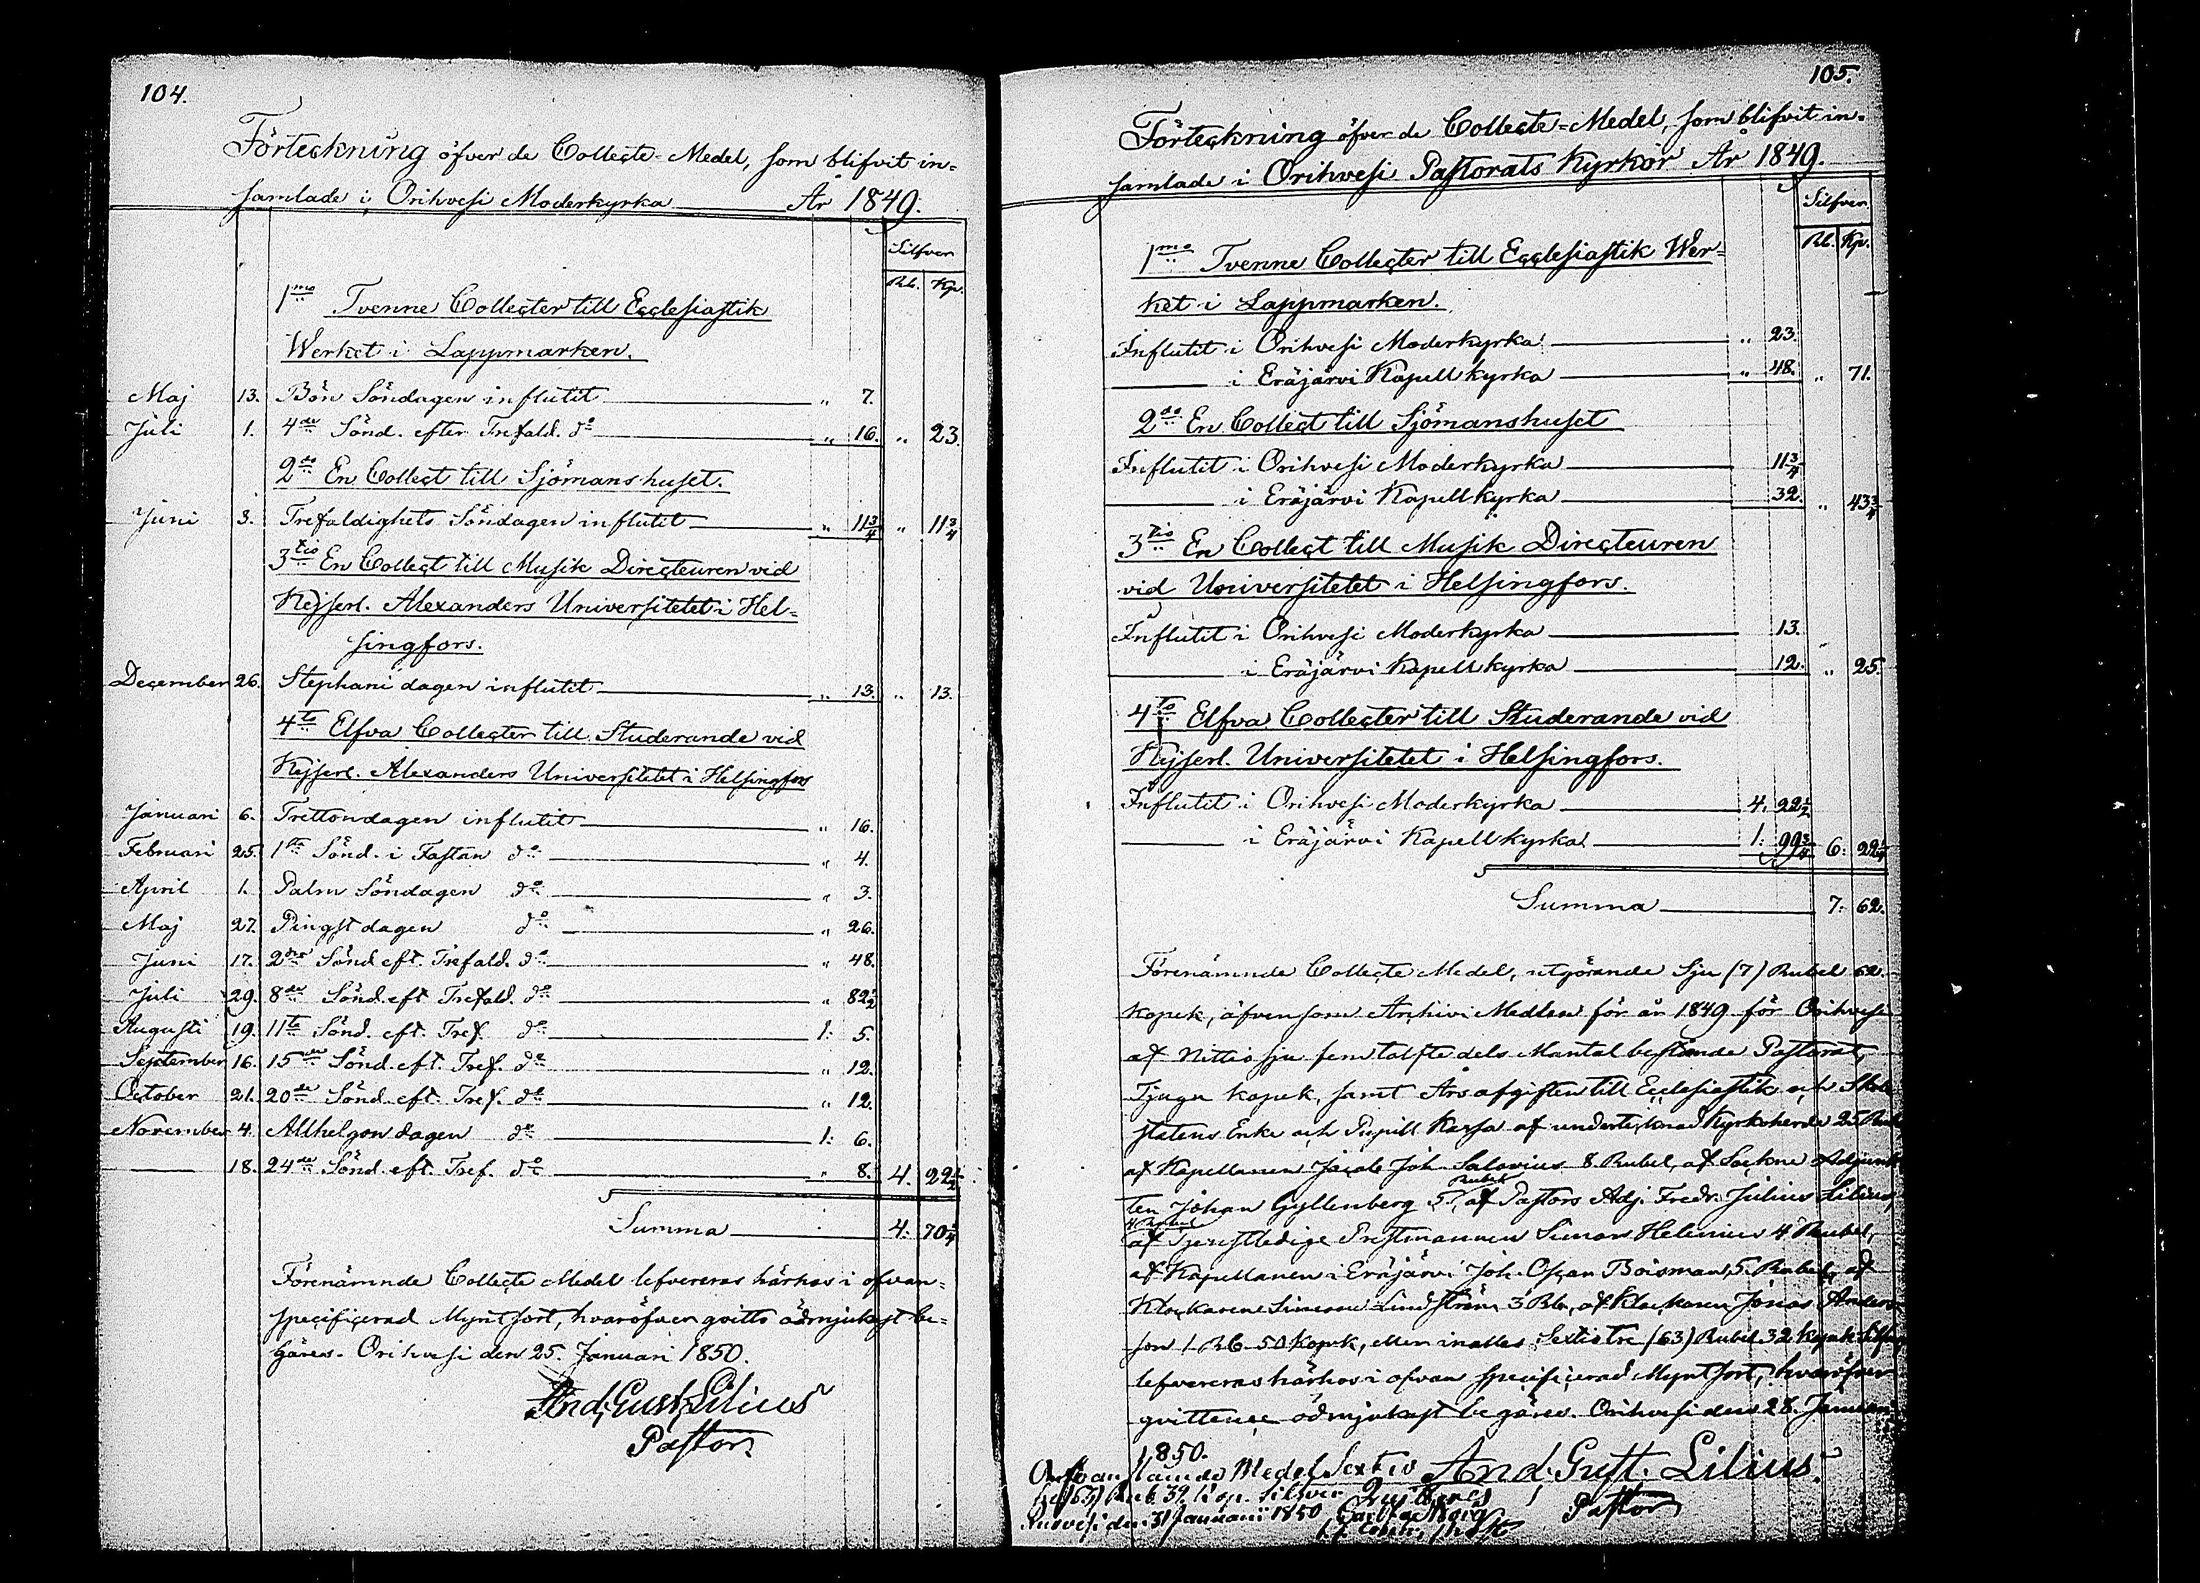 104.
Förteckning öfver de Collecte-Medel, som blifvit in-
samlade i Orihvesi Moderkyrka År 1849.
Silfver
Rb. Kp.
1mo Tvenne Collecter till Ecclesiastik
Werket i Lappmarken.
Maj 13. Bön Söndagen influtit " 7.
Juli 1. 4de Sönd. efter Trefald. do " 16. " 23.
2do En Collect till Sjömanshuset.
Juni 3. Trefaldighets Söndagen influtit " 11 3/4 " 11 3/4
3tio En Collect till Musik Directeuren vid
Kejserl. Alexanders Universitetet i Hel-
singfors.
December 26. Stephani dagen influtit " 13. " 13.
4to Elfva Collecter till Studerande vid
Kejserl. Alexanders Universitetet i Helsingfors
Januari 6. Trettondagen influtit " 16.
Februari 25. 1sta Sönd. i Fastan do " 4.
April 1. Palm Söndagen do " 3.
Maj 27. Pingst dagen do " 26.
Juni 17. 2dra Sönd. eft. Trefald. do " 48.
Juli 29. 8de Sönd. eft Trefald. do " 82 1/2
Augusti 19. 11te Sönd. eft. Tref. do 1. 5.
September 16. 15de Sönd. eft. Tref. do " 12.
October 21. 20de Sönd. eft. Tref. do " 12.
November 4. Allhelgon dagen do 1. 6.
18. 24de Sönd. eft. Tref. do " 8. 4. 22 1/2
Summa 4. 70 1/4
Förenämnde Collecte Medel lefvereras härhos i ofvan-
specificerad Myntsort, hvaröfver qvitto ödmjukast be-
gäres. Orihvesi den 25. Januari 1850.
And. Gust. Lilius
Pastor.
105.
Förteckning öfver de Collecte-Medel, som blifvit in-
samlade i Orihvesi Pastorats Kyrkor År 1849.
Silfver
Rb. Kp.
1mo Tvenne Collecter till Ecclesiastik Wer-
ket i Lappmarken.
Influtit i Orihvesi Moderkyrka " 23.
i Eräjärvi Kapellkyrka " 48. " 71.
2do En Collect till Sjömanshuset
Influtit i Orihvesi Moderkyrka 11 3/4
i Eräjärvi Kapellkyrka 32. " 43 3/4
3tio En Collect till Musik Directeuren
vid Universitetet i Helsingfors.
Influtit i Orihvesi Moderkyrka 13.
i Eräjärvi Kapellkyrka 12. " 25.
4to Elfva Collecter till Studerande vid
Kejserl. Universitetet i Helsingfors.
Influtit i Orihvesi Moderkyrka 4. 22 1/2
i Eräjärvi Kapellkyrka 1. 99 3/4 6. 22 1/4
Summa 7. 62.
Förenämnde Collecte Medel, utgörande Sju (7) Rubel 62.
Kopek, äfvensom Archivi Medlen för år 1849 för Orihvesi
af Nittio sju fem tolfte dels Mantal bestående Pastorat,
Tjugu kopek, samt Årsafgiften till Ecclesiastik och Skole
statens Enke och Pupill Kassa af undertecknad Kyrkoherde 25 Rub
af Kapellanen Jacob Joh. Salovius 8 Rubel, af Sockne Adjunk
ten Johan Gyllenberg 5 Rubel, af Pastors Adj. Fredr. Julius Lilius,
4 Rubel
af Tjenstledige Prestmannen Simon Helenius 4 Rubel,
af Kapellanen i Eräjärvi Joh. Oscar Boisman 5. Rubel, af
Klockaren Simeon Lindström 3 Rb, af Klockaren Jonas Anders
son 1 Rb 50 Kopek, eller inalles Sextiotre (63) Rubel 32 Kopek Silfver
lefvereras härhos i ofvan specificerad Myntsort, hvaröfver
qvittence ödmjukast begäres. Orihvesi den 28. Januari
1850.
And. Gust. Lilius.
Pastor
Ofvanstående Medel Sextio
tre (63) Rub. 32 Kop. Silfver Quitteres
Ruovesi den 31 Januari 1850